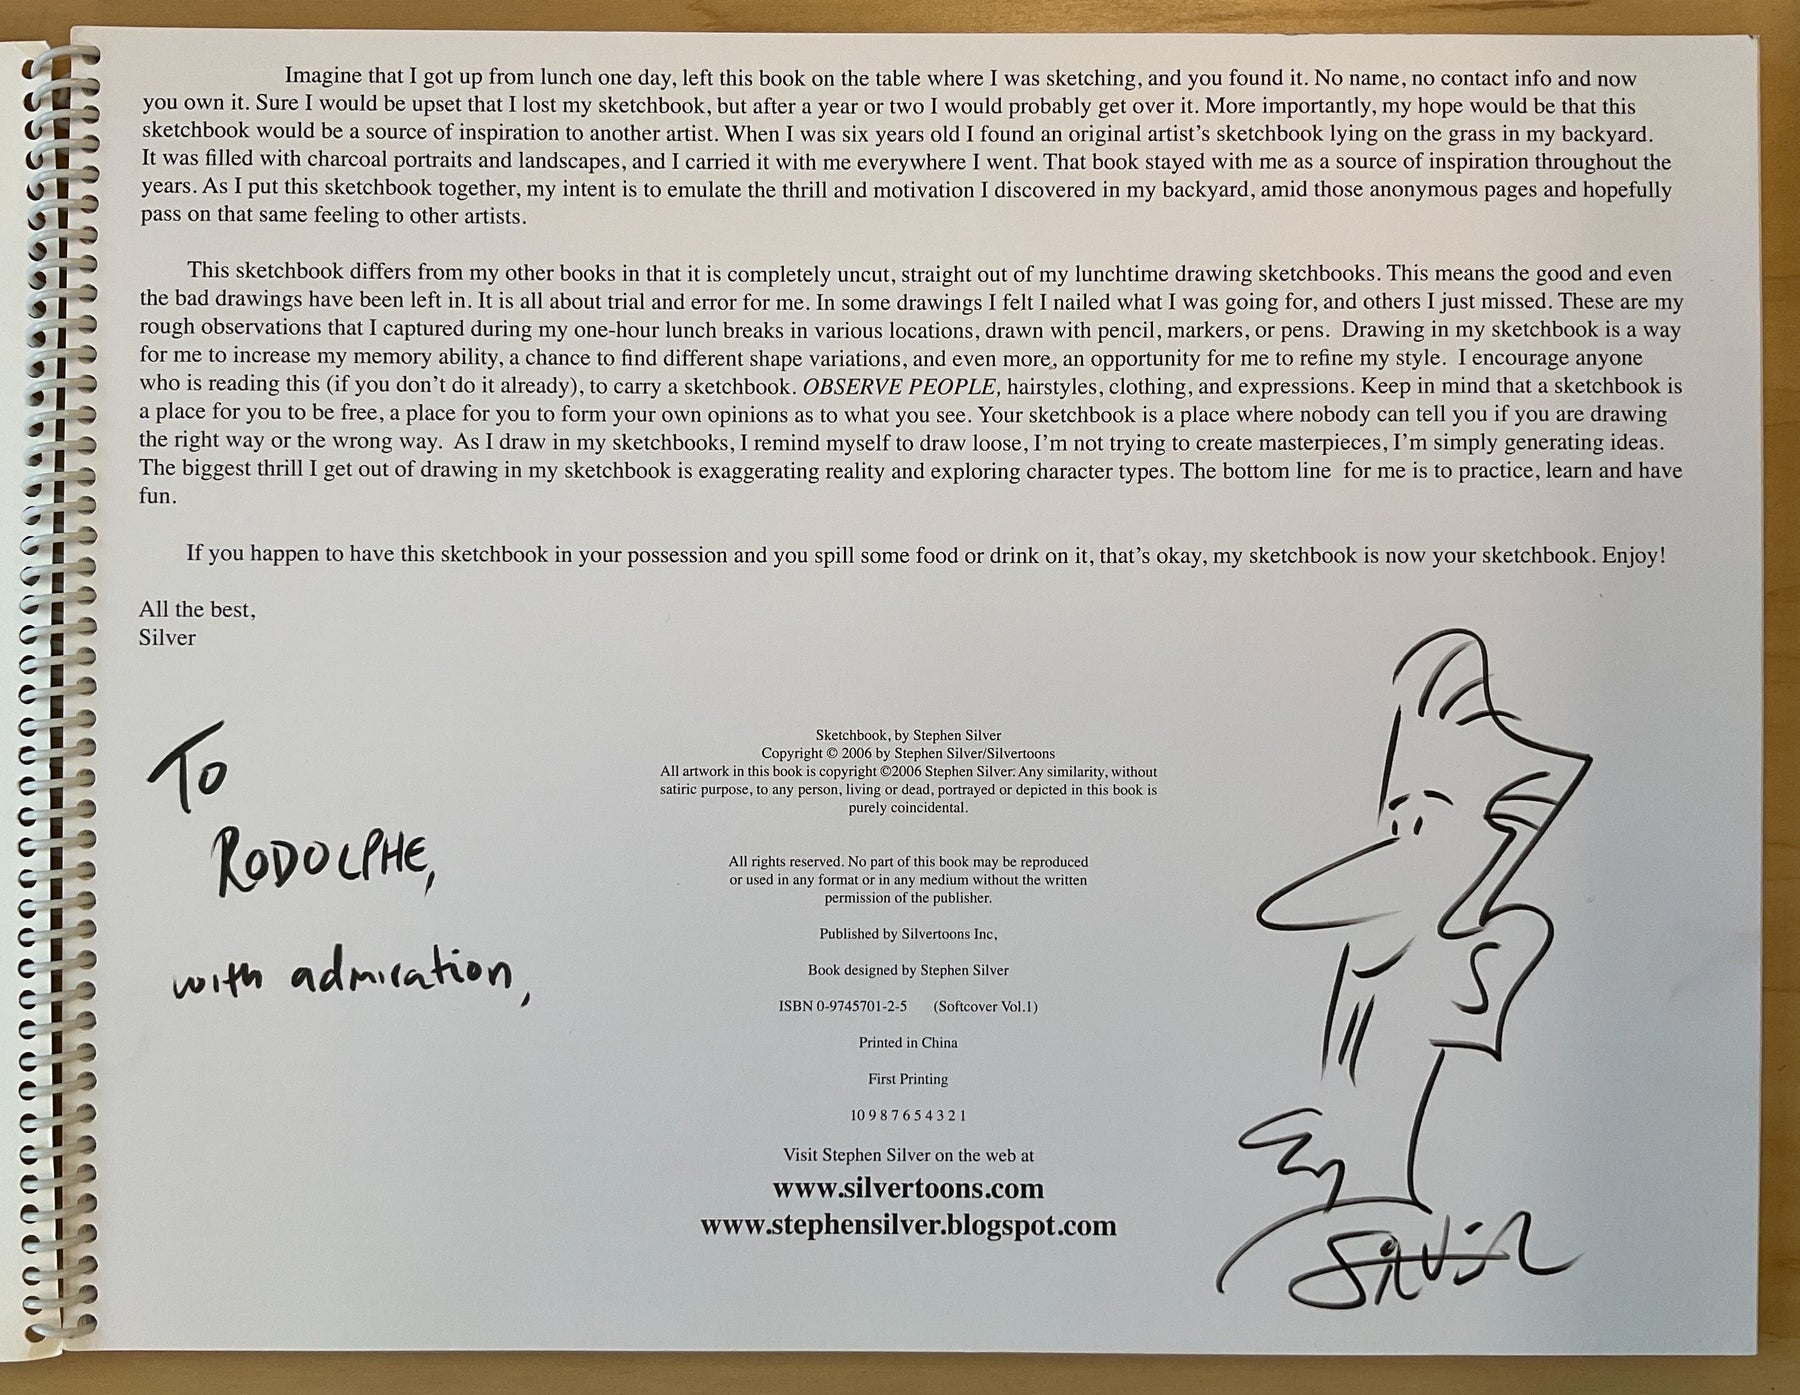 Imagine that I got up from lunch one day, left this book on the table where I was sketching, and you found it. No name, no contact info and now
you own it. Sure I would be upset that I lost my sketchbook, but after a year or two I would probably get over it. More importantly, my hope would be that this
sketchbook would be a source of inspiration to another artist. When I was six years old I found an original artist's sketchbook lying on the grass in my backyard.
It was filled with charcoal portraits and landscapes, and I carried it with me everywhere I went. That book stayed with me as a source of inspiration throughout the
years. As I put this sketchbook together, my intent is to emulate the thrill and motivation I discovered in my backyard, amid those anonymous pages and hopefully
pass on that same feeling to other artists.
This sketchbook differs from my other books in that it is completely uncut, straight out of my lunchtime drawing sketchbooks. This means the good and even
the bad drawings have been left in. It is all about trial and error for me. In some drawings I felt I nailed what I was going for, and others I just missed. These are my
rough observations that I captured during my one-hour lunch breaks in various locations, drawn with pencil, markers, or pens. Drawing in my sketchbook is a way
for me to increase my memory ability, a chance to find different shape variations, and even more, an opportunity for me to refine my style. I encourage anyone
who is reading this (if you don't do it already), to carry a sketchbook. OBSERVE PEOPLE, hairstyles, clothing, and expressions. Keep in mind that a sketchbook is
a place for you to be free, a place for you to form your own opinions as to what you see. Your sketchbook is a place where nobody can tell you if you are drawing
the right way or the wrong way. As I draw in my sketchbooks, I remind myself to draw loose, I'm not trying to create masterpieces, I'm simply generating ideas.
The biggest thrill I get out of drawing in my sketchbook is exaggerating reality and exploring character types. The bottom line for me is to practice, learn and have
fun.
If you happen to have this sketchbook in your possession and you spill some food or drink on it, that's okay, my sketchbook is now your sketchbook. Enjoy!
All the best,
Silver
To
RODOLPHE,
with admiration,
Sketchbook, by Stephen Silver
Copyright © 2006 by Stephen Silver/Silvertoons
All artwork in this book is copyright ©2006 Stephen Silver. Any similarity, without
satiric purpose, to any person, living or dead, portrayed or depicted in this book is
purely coincidental.
All rights reserved. No part of this book may be reproduced
or used in any format or in any medium without the written
permission of the publisher.
Published by Silvertoons Inc,
Book designed by Stephen Silver
ISBN 0-9745701-2-5 (Softcover Vol.1)
Printed in China
First Printing
10 9 8 7 6 5 4 3 2 1
Visit Stephen Silver on the web at
www.silvertoons.com
www.stephensilver.blogspot.com
S
Silver